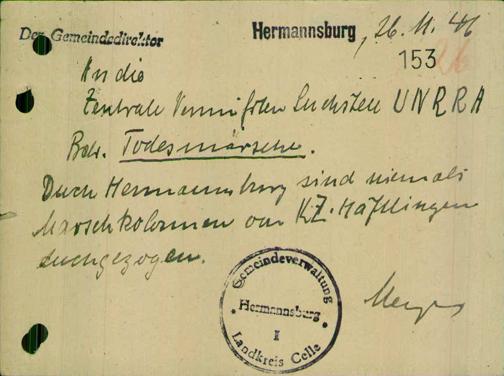 Der Gemeindedirektor
Hermannsburg, 26.11.46
153
An die
Zentrale Vermißten Suchstelle UNRRA
Betr. Todesmärsche.
Durch Hermannsburg sind niemals
Marschkolonnen von KZ-Häftlingen
durchgezogen.
Gemeindeverwaltung
Hermannsburg
I
Landkreis Celle